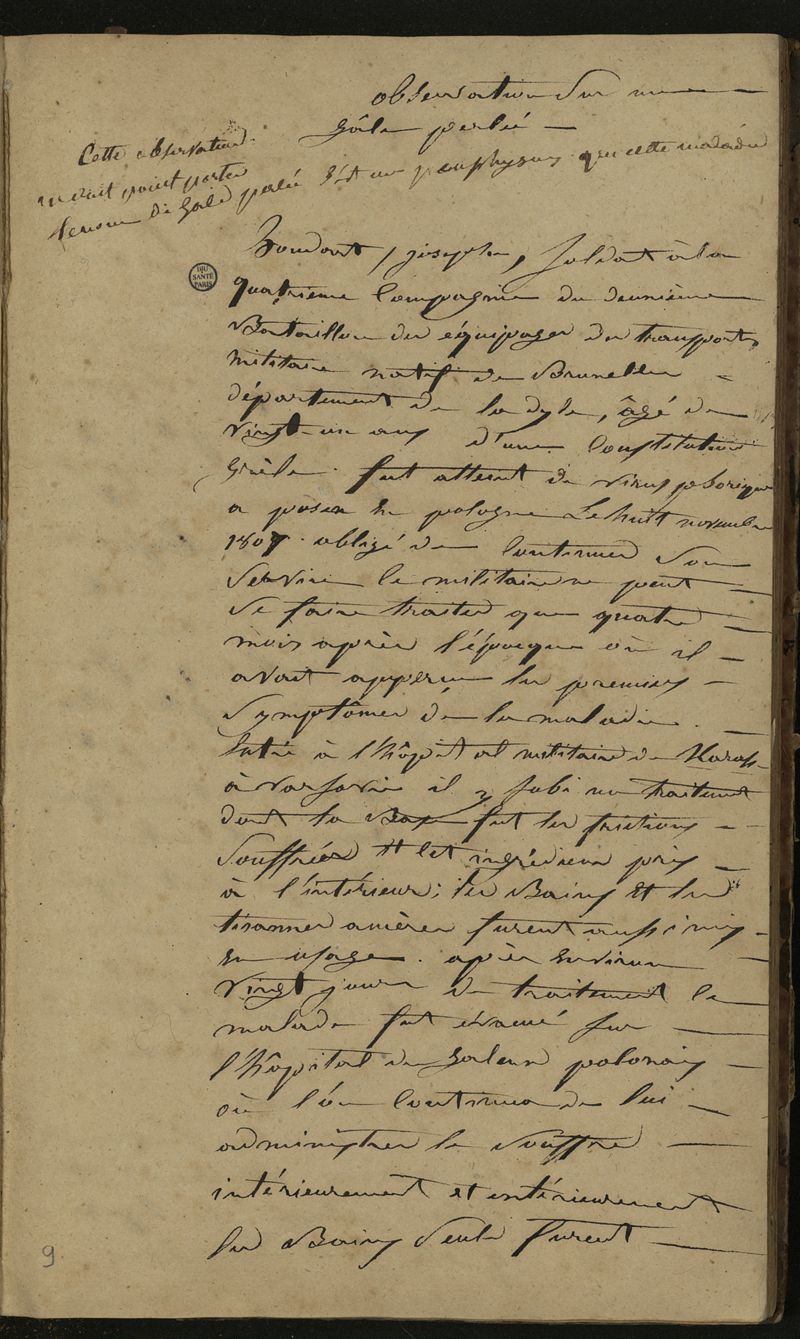 observation sur une
Gâle perlée
Cette observation
ne doit point porter
le nom de Gale perlée c'est un pemphygus que cette maladie
joseph, soldat à la
BIU
SANTE
PARIS
quatrieme Compagnie du deuxième
Bataillon des équipages des transports
militaire natif de Bruxelles
département de la dyle, âgé de
vingt-un ans d'une Constitution
Grêle. fut atteint du virus psorique
a posen En pologne Le huit novembre
1807. obligé de Continuer Son
Service le militaire ne peut
Se faire traiter que quatre
mois après l'époque où il
avait apperçu les premiers
Symptômes de la maladie.
Entré à l'hôpital militaire de
à varsovie il y subi un traitement
dont la Base fut les frictions
Souffrées Et cet ingrédient pris
à l'intérieur; les Bains Et les
tisannes amères furent aussi mis
En usage. après Environ
vingt jours de traitement le
malade fut évacué sur
l'hôpital de Galeux polonais
où l'on Continua de lui
administrer le Souffre
intérieurement et extérieurement
les Bains Seuls furent
9